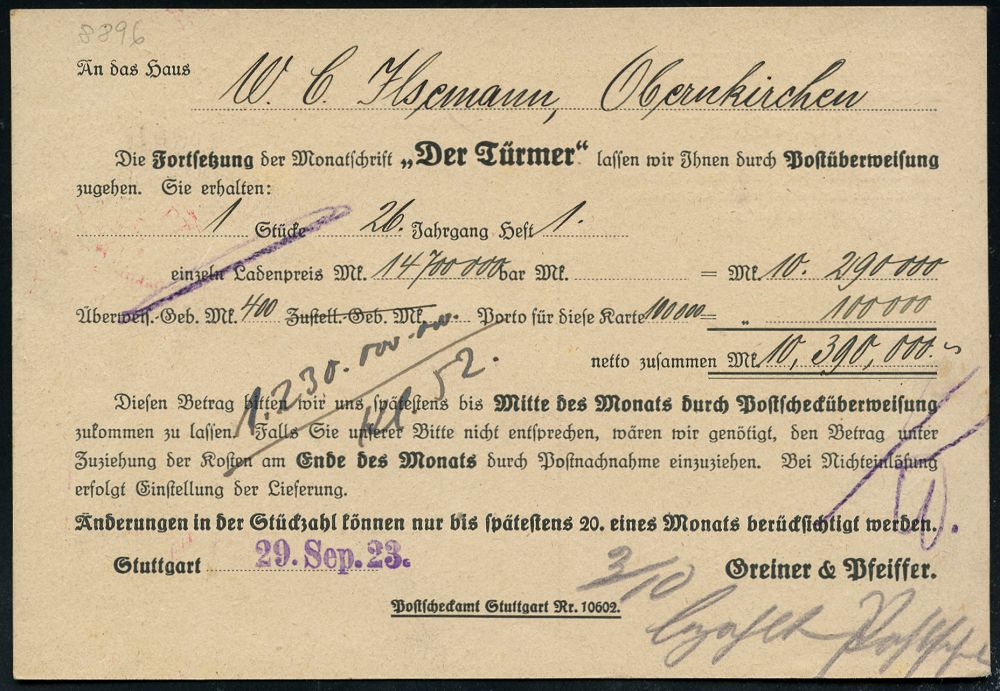 8896
An das Haus W. C. Ilsemann, Obernkirchen
Die Fortsetzung der Monatschrift „Der Türmer“ lassen wir Ihnen durch Postüberweisung
zugehen. Sie erhalten:
1 Stücke 26. Jahrgang Heft 1.
einzeln Ladenpreis Mk. 14700000 bar Mk. = Mk. 10. 290 000
Überweis.-Geb. Mk. 400 Zustell.-Geb. Mk. Porto für diese Karte 100 000 = „ 100 000
netto zusammen Mk. 10, 390, 000.-
1.230.000.000.
52.
Diesen Betrag bitten wir uns spätestens bis Mitte des Monats durch Postschecküberweisung
zukommen zu lassen. Falls Sie unserer Bitte nicht entsprechen, wären wir genötigt, den Betrag unter
Zuziehung der Kosten am Ende des Monats durch Postnachnahme einzuziehen. Bei Nichteinlösung
erfolgt Einstellung der Lieferung.
Änderungen in der Stückzahl können nur bis spätestens 20. eines Monats berücksichtigt werden.
Stuttgart 29. Sep. 23. Greiner & Pfeiffer.
3/10
Postscheckamt Stuttgart Nr. 10602.
bezahlt